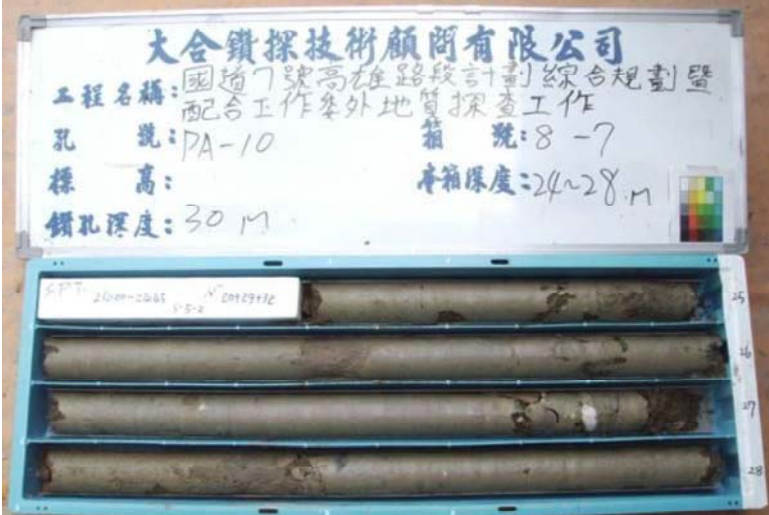 大合鑽探技術顧問有限公司
工程名稱:國道7號高雄路段計劃綜合規劃暨
配合工作委外地質探查工作
孔號:PA-10 箱號:8-7
標高: 本箱深度:24~28.m
鑽孔深度:30 M
S.P.T.
25
26
27
28